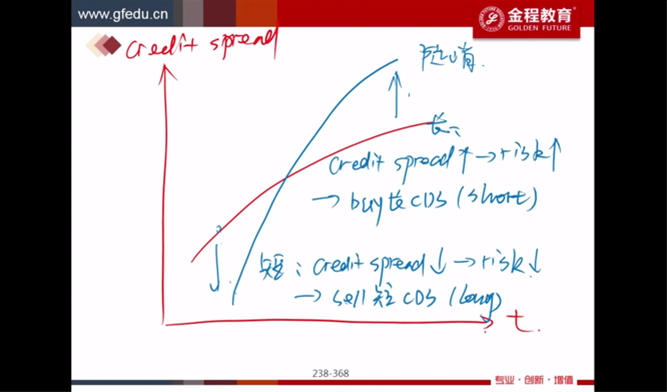 www.gfedu.cn
金程教育
GOLDEN FUTURE
credit spread
陡峭
长:
credit spread↑→risk↑
→buy长CDS(short)
短:credit spread↓→risk↓
→sell短CDS(long)
t
238-368
专业·创新·增值